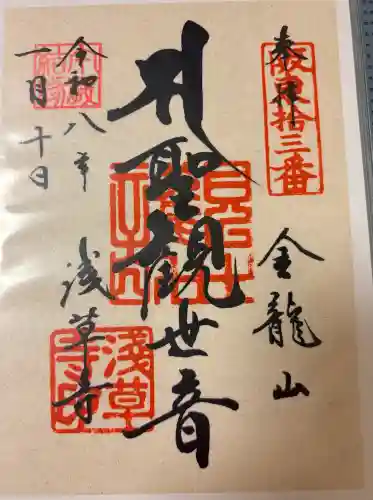 奉拝
坂東拾三番
金龍山
聖観世音
浅草寺
淺草寺
令和八年
一月十日